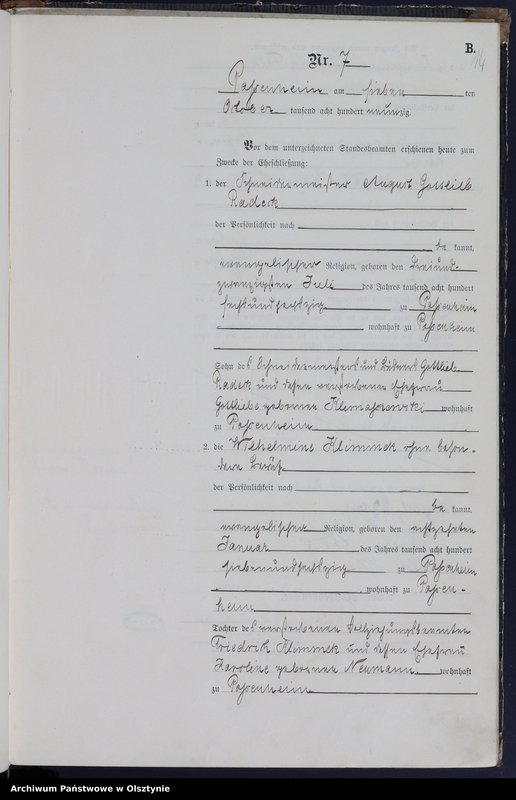 B.
114
Nr. 7
Passenheim am sieben ten
October tausend acht hundert neunzig.
Vor dem unterzeichneten Standesbeamten erschienen heute zum
Zwecke der Eheschließung:
1. der Schneidermeister August Gottlieb
Radeck
der Persönlichkeit nach
be kannt,
evangelischer Religion, geboren den dreiund-
zwanzigsten Juli des Jahres tausend acht hundert
sechsundsechszig zu Passenheim
, wohnhaft zu Passenheim
Sohn des Schneidermeisters und Gottlieb
Radeck und dessen verstorbenen Ehefrau
Gottliebe geborenen Klimaschewski wohnhaft
zu Passenheim
2. die Wilhelmine Klimmek ohne beson-
dern Beruf
der Persönlichkeit nach
be kannt,
evangelischer Religion, geboren den achtzehnten
Januar des Jahres tausend acht hundert
siebenundsechszig zu Passenheim
, wohnhaft zu Passen-
heim
Tochter des verstorbenen Vollziehungsbeamten
Friedrich Klimmek und dessen Ehefrau
Karoline geborenen Neumann wohnhaft
zu Passenheim
Archiwum Państwowe w Olsztynie